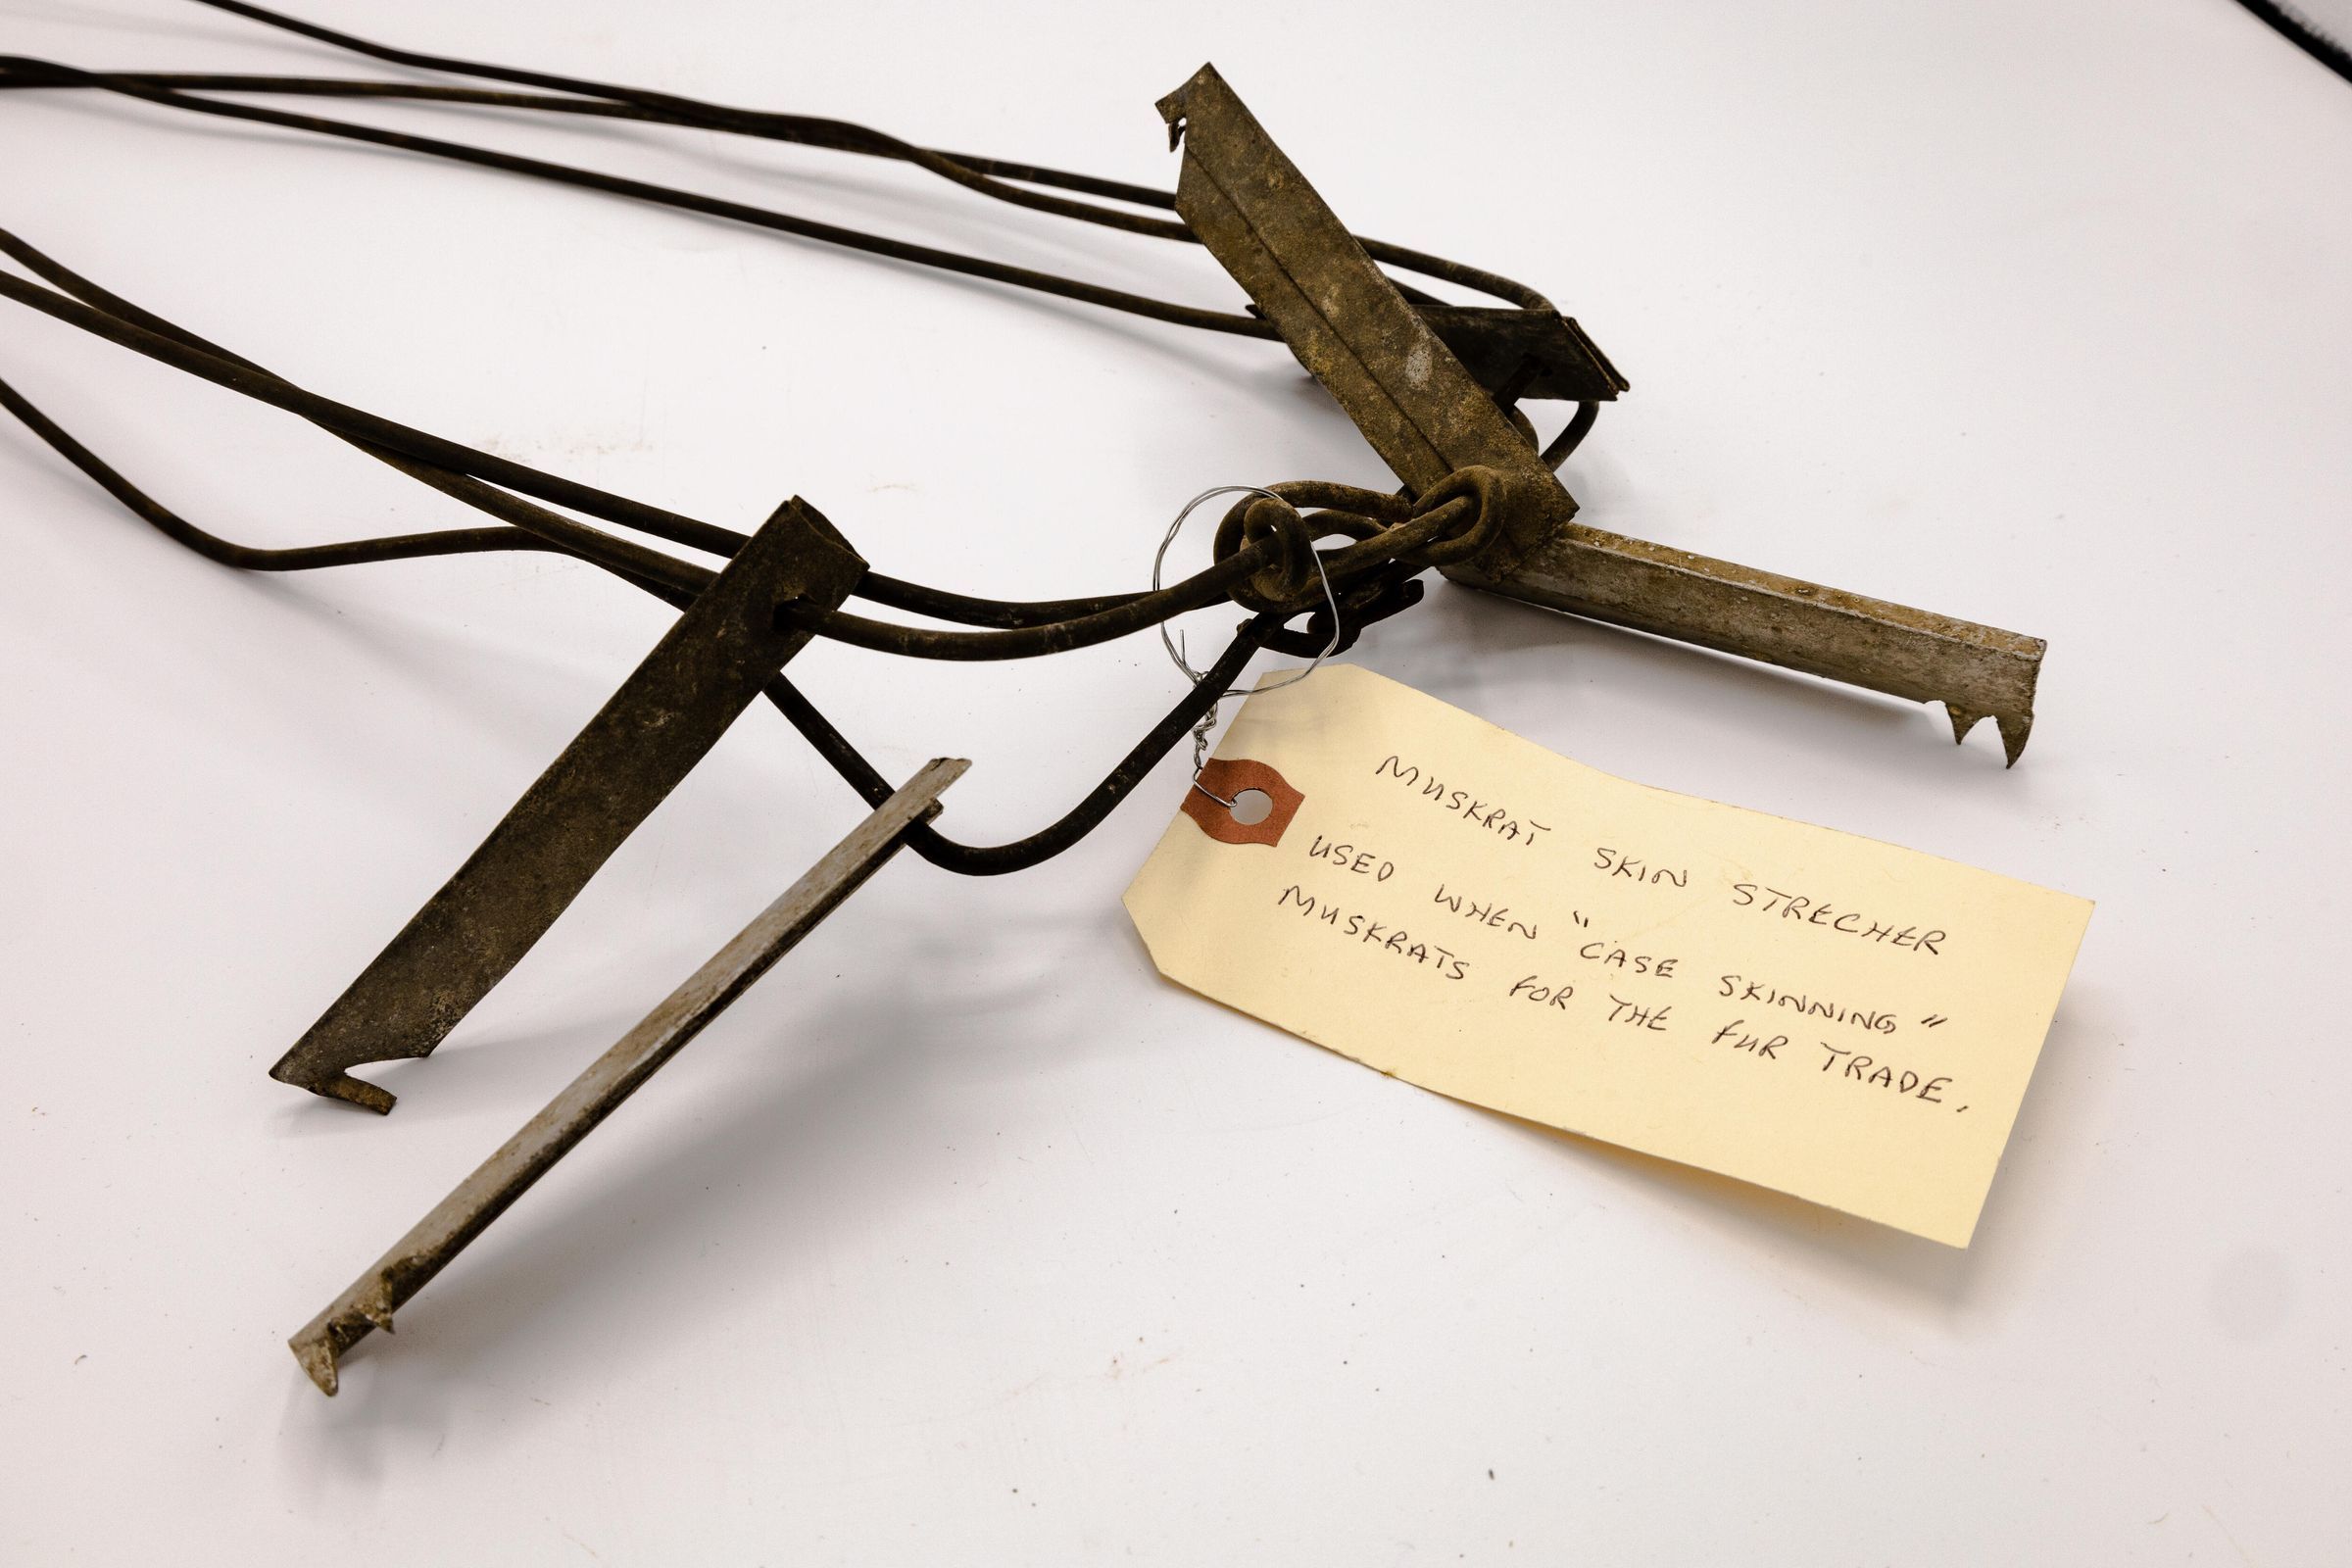 MUSKRAT SKIN STRECHER
USED WHEN "CASE SKINNING"
MUSKRATS FOR THE FUR TRADE.